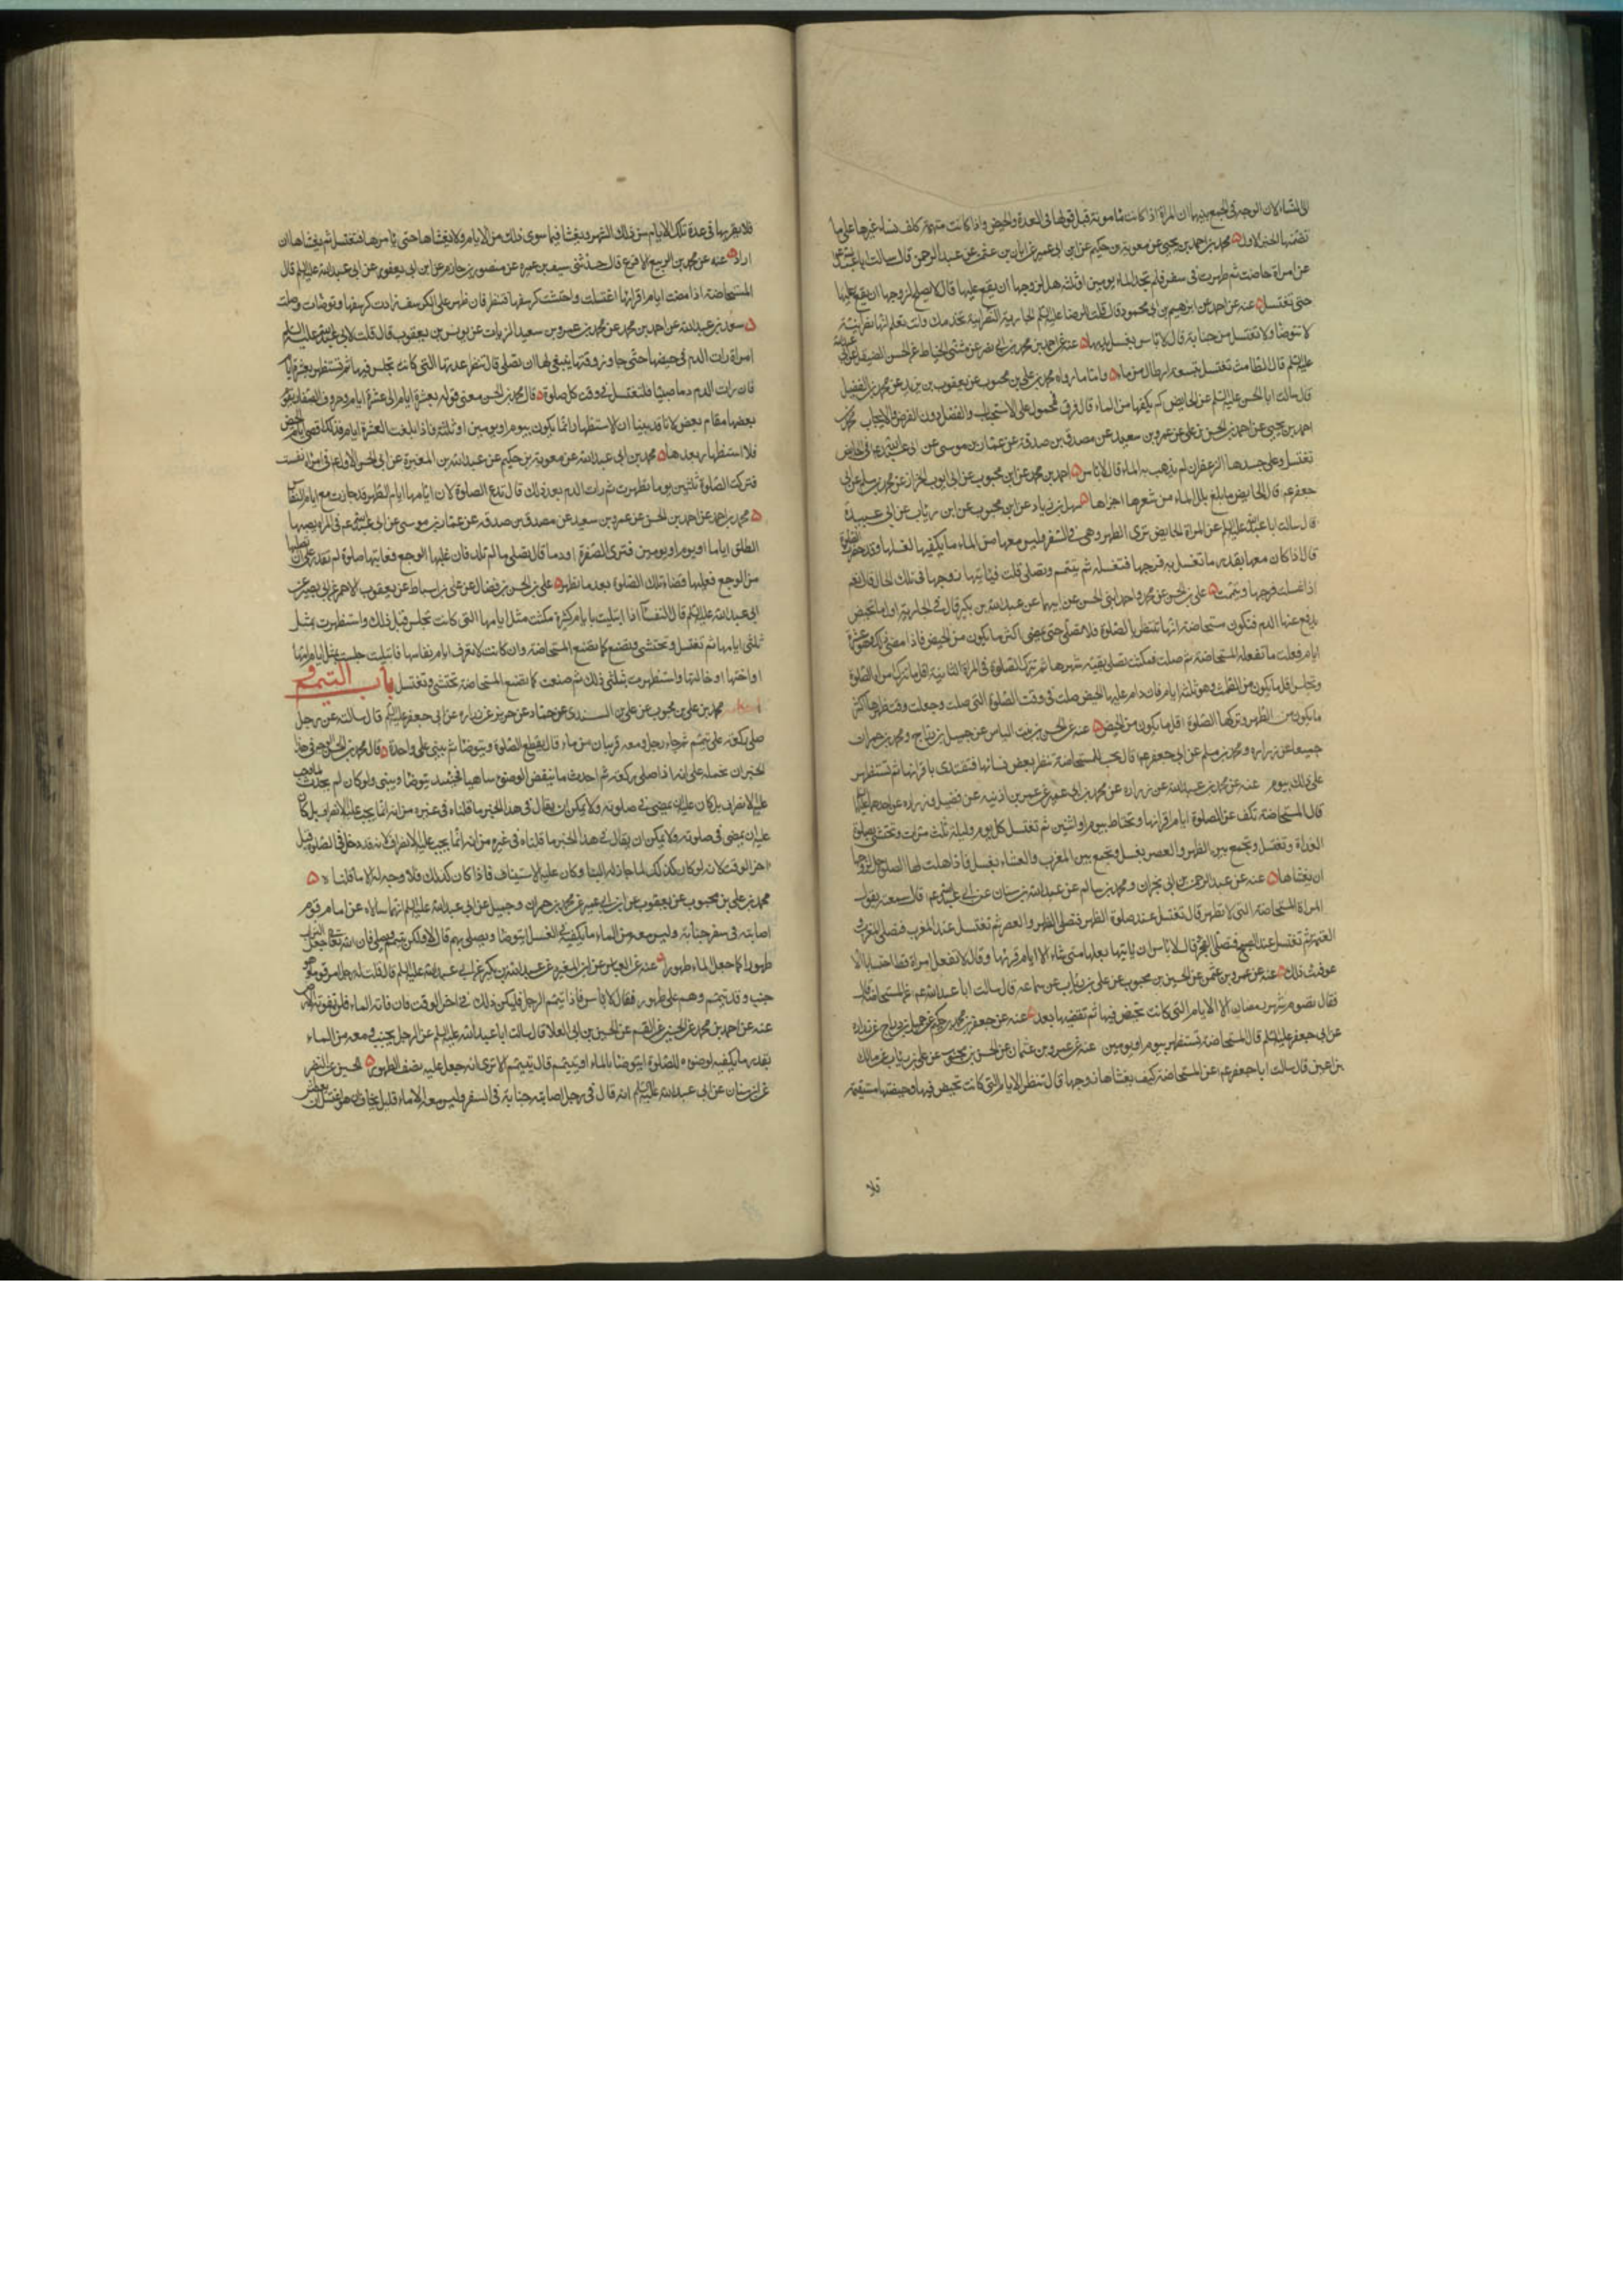 الى النساء لان الوجه في الجمع بينهما ان المراة اذا كانت مامونة قبل قولها في العدة والحيض واذا كانت متهمة كلف نساء غيرها على ما
تضمنها الخبر الاول محمد بن احمد بن يحيى عن معوية بن حكيم عن ابن ابي عمير عن ابان بن عثمن عن عبد الرحمن قال سالت ابا عبد الله
عن امراة حاضت ثم طهرت في سفر فلم تجد الماء يومين او ثلثة هل لزوجها ان يقع عليها قال لا يصلح لزوجها ان يقع عليها
حتى تغتسل عنه عن احمد عن ابرهيم بن ابي محمود قال قلت للرضا عليه السلم الجارية النصرانية تخدمك وانت تعلم انها نصرانية
لا تتوضا ولا تغتسل من جنابة قال لا باس يغسل يديها عنه عن احمد بن محمد بن ابي نصر عن مثنى الخياط عن الحسن الصيقل عن ابي عبد الله
عليه السلم قال الطامث تغتسل بتسعة ارطال من ماء واما ما رواه محمد بن علي بن محبوب عن يعقوب بن يزيد عن محمد بن الفضيل
قال سالت ابا الحسن عليه السلم عن الحايض كم يكفيها من الماء قال فرق فمحمول على الاستحباب والفضل دون الفرض والايجاب محمد بن
احمد بن يحيى عن احمد بن الحسن بن علي عن عمرو بن سعيد عن مصدق بن صدقة عن عمار بن موسى عن ابي عبد الله ع في الحايض
تغتسل وعلى جسدها الزعفران لم يذهب به الماء قال لا باس احمد بن محمد عن ابن محبوب عن ابي ايوب الخزاز عن محمد بن مسلم عن ابي
جعفر ع قال الحايض ما بلغ بلل الماء من شعرها اجزاها سهل بن زياد عن ابن محبوب عن ابن رئاب عن ابي عبيدة
قال سالت ابا عبد الله عليه السلم عن المراة الحايض ترى الطهر وهي في السفر وليس معها من الماء ما يكفيها لغسلها وقد حضرت الصلوة
قال اذا كان معها بقدر ما تغسل به فرجها فتغسله ثم تتيمم وتصلي قلت فياتيها زوجها في تلك الحال قال نعم
اذا غسلت فرجها وتيممت علي بن الحسن عن محمد واحمد ابني الحسن عن ابيهما عن عبد الله بن بكير قال في الجارية اول ما تحيض
يدفع عنها الدم فتكون مستحاضة انها تنتظر بالصلوة فلا تصلي حتى يمضي اكثر ما يكون من الحيض فاذا مضى ذلك وهو عشرة
ايام فعلت ما تفعله المستحاضة ثم صلت فمكثت تصلي بقية شهرها ثم تترك الصلوة في المرة الثانية اقل ما تترك امراة الصلوة
وتجلس اقل ما يكون من الطمث وهو ثلثة ايام فان دام عليها الحيض صلت في وقت الصلوة التي صلت وجعلت وقت طهرها اكثر
ما يكون من الطهر وتركها الصلوة اقل ما يكون من الحيض عنه عن الحسن بن بنت الياس عن جميل بن دراج ومحمد بن حمران
جميعا عن زرارة ومحمد بن مسلم عن ابي جعفر ع قال يجب للمستحاضة ان تنظر بعض نسائها فتقتدي باقرائها ثم تستظهر
على ذلك بيوم عنه عن محمد بن عبد الله بن زرارة عن محمد بن ابي عمير عن عمر بن اذينة عن فضيل وزرارة عن احدهما عليهما
قال المستحاضة تكف عن الصلوة ايام اقرائها وتحتاط بيوم او اثنين ثم تغتسل كل يوم وليلة ثلث مرات وتحتشي لصلوة
الغداة وتغتسل وتجمع بين الظهر والعصر بغسل وتجمع بين المغرب والعشاء بغسل فاذا حلت لها الصلوة حل لزوجها
ان يغشاها عنه عن عبد الرحمن بن ابي نجران ومحمد بن سالم عن عبد الله بن سنان عن ابي عبد الله ع قال سمعته يقول
المراة المستحاضة التي لا تطهر قال تغتسل عند صلوة الظهر فتصلي الظهر والعصر ثم تغتسل عند المغرب فتصلي المغرب و
العتمة ثم تغتسل عند الصبح فتصلي الفجر قال لا باس ان ياتيها بعلها متى شاء الا ايام قرئها وقال لا تفعل امراة قط احتسابا الا
عوفيت ذلك عنه عن عمرو بن عثمن عن الحسين بن محبوب عن علي بن رئاب عن سماعة قال سالت ابا عبد الله ع عن المستحاضة قال
فقال تصوم شهر رمضان الا الايام التي كانت تحيض فيها ثم تقضيها بعد عنه عن جعفر بن محمد بن حكيم عن جميل بن دراج عن زرارة
عن ابي جعفر عليه السلم قال المستحاضة تستظهر بيوم او يومين عنه عن عمرو بن عثمان عن الحسن بن محبوب عن علي بن رئاب عن مالك
بن اعين قال سالت ابا جعفر ع عن المستحاضة كيف يغشاها زوجها قال تنظر الايام التي كانت تحيض فيها وحيضتها مستقيمة
فلا
فلا يقربها في عدة تلك الايام من ذلك الشهر ويغشاها فيما سوى ذلك من الايام ولا يغشاها حتى يامرها فتغتسل ثم يغشاها ان
اراد عنه عن محمد بن الربيع الاقرع قال حدثني سيف بن عميرة عن منصور بن حازم عن ابن ابي يعفور عن ابي عبد الله عليه السلم قال
المستحاضة اذا مضت ايام اقرائها اغتسلت واحتشت كرسفها وتنظر فان ظهر على الكرسف زادت كرسفها وتوضات وصلت
سعد بن عبد الله عن احمد بن محمد عن محمد بن عمرو بن سعيد الزيات عن يونس بن يعقوب قال قلت لابي عبد الله عليه السلم
امراة رات الدم في حيضها حتى جاوز وقتها متى ينبغي لها ان تصلي قال تنظر عدتها التي كانت تجلس فيها ثم تستظهر بعشرة ايام
فان رات الدم دما صبيبا فلتغتسل في وقت كل صلوة قال محمد بن الحسن معنى قوله بعشرة ايام الى عشرة ايام وحروف الصفات يقوم
بعضها مقام بعض لانا قد بينا ان الاستظهار انما يكون بيوم او يومين او ثلثة فاذا بلغت العشرة ايام فذلك اقصى ايام الحيض
فلا استظهار بعدها محمد بن ابي عبد الله عن معوية بن حكيم عن عبد الله بن المغيرة عن ابي الحسن الاول ع في امراة نفست
فتركت الصلوة ثلثين يوما ثم طهرت ثم رات الدم بعد ذلك قال تدع الصلوة لان ايامها ايام الطهر قد جازت مع ايام النفاس
محمد بن احمد عن احمد بن الحسن عن عمرو بن سعيد عن مصدق بن صدقة عن عمار بن موسى عن ابي عبد الله ع في المراة يصيبها
الطلق اياما او يوما او يومين فترى الصفرة او دما قال تصلي ما لم تلد فان غلبها الوجع ففاتها صلوة لم تقدر على ان تصليها
من الوجع فعليها قضاء تلك الصلوة بعد ما تطهر علي بن الحسن بن فضال عن علي بن اسباط عن يعقوب الاحمر عن ابي بصير عن
ابي عبد الله عليه السلم قال النفساء اذا ابتليت بايام كثيرة مكثت مثل ايامها التي كانت تجلس قبل ذلك واستظهرت بمثل
ثلثي ايامها ثم تغتسل وتحتشي وتصنع كما تصنع المستحاضة وان كانت لا تعرف ايام نفاسها فابتليت جلست مثل ايام امها
او اختها او خالتها واستظهرت بثلثي ذلك ثم صنعت كما تصنع المستحاضة تحتشي وتغتسل باب التيمم
محمد بن علي بن محبوب عن علي بن السندي عن حماد عن حريز عن زرارة عن ابي جعفر عليه السلم قال سالته عن رجل
صلى ركعة على تيمم ثم جاء رجل ومعه قربتان من ماء قال يقطع الصلوة ويتوضا ثم يبني على واحدة قال محمد بن الحسن الوجه في هذا
الخبر ان نحمله على انه اذا صلى ركعة ثم احدث ما ينقض الوضوء ساهيا فحينئذ يتوضا ويبني ولو كان لم يحدث لما وجب
عليه الانصراف بل كان عليه ان يمضي في صلوته ولا يمكن ان يقال في هذا الخبر ما قلناه في غيره من انه انما يجب عليه الانصراف بل كان
عليه ان يمضي في صلوته ولا يمكن ان يقال في هذا الخبر ما قلناه في غيره من انه انما يجب عليه الانصراف لانه قد دخل في الصلوة قبل
اخر الوقت لانه لو كان كذلك لما جاز له البنا وكان عليه الاستيناف فاذا كان كذلك فلا وجه له الا ما قلناه
محمد بن علي بن محبوب عن يعقوب عن ابن ابي عمير عن محمد بن حمران وجميل عن ابي عبد الله عليه السلم انهما سالاه عن امام قوم
اصابته في سفر جنابة وليس معه من الماء ما يكفيه في الغسل ايتوضا ويصلي بهم قال لا ولكن يتيمم ويصلي فان الله تعالى جعل التراب
طهورا كما جعل الماء طهورا عنه عن العباس عن ابن المغيرة عن عبد الله بن بكير عن ابي عبد الله عليه السلم قال قلت له رجل ام قوما وهو
جنب وقد تيمم وهم على طهور فقال لا باس فاذا تيمم الرجل فليكن ذلك في اخر الوقت فان فاته الماء فلن تفوته الارض
عنه عن احمد بن محمد عن الحسين عن القسم عن الحسين بن ابي العلا قال سالت ابا عبد الله عليه السلم عن الرجل يجنب ومعه من الماء
بقدر ما يكفيه لوضوءه للصلوة ايتوضا بالماء او يتيمم قال يتيمم الا ترى انه جعل عليه نصف الطهور الحسين عن النضر
عن ابن سنان عن ابي عبد الله عليه السلم انه قال في رجل اصابته جنابة في السفر وليس معه الا ماء قليل يخاف ان هو اغتسل ان يعطش